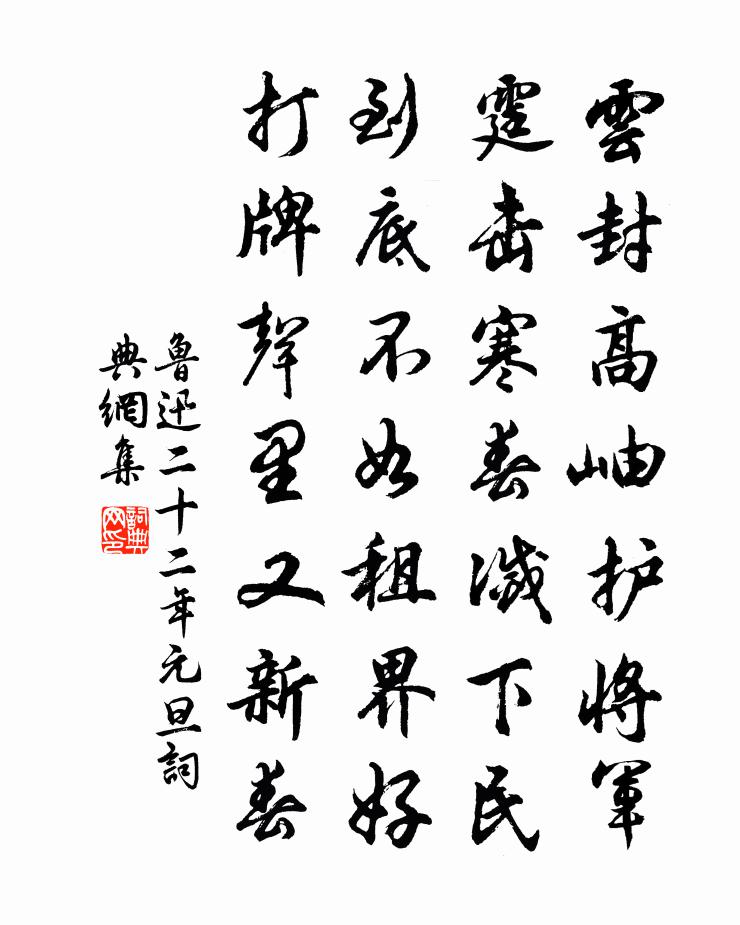 雲封高岫护將軍
霆击寒春滅下民
到底不如租界好
打牌聲里又新春
魯迅二十二年元旦詞
典網集
詞典
网印